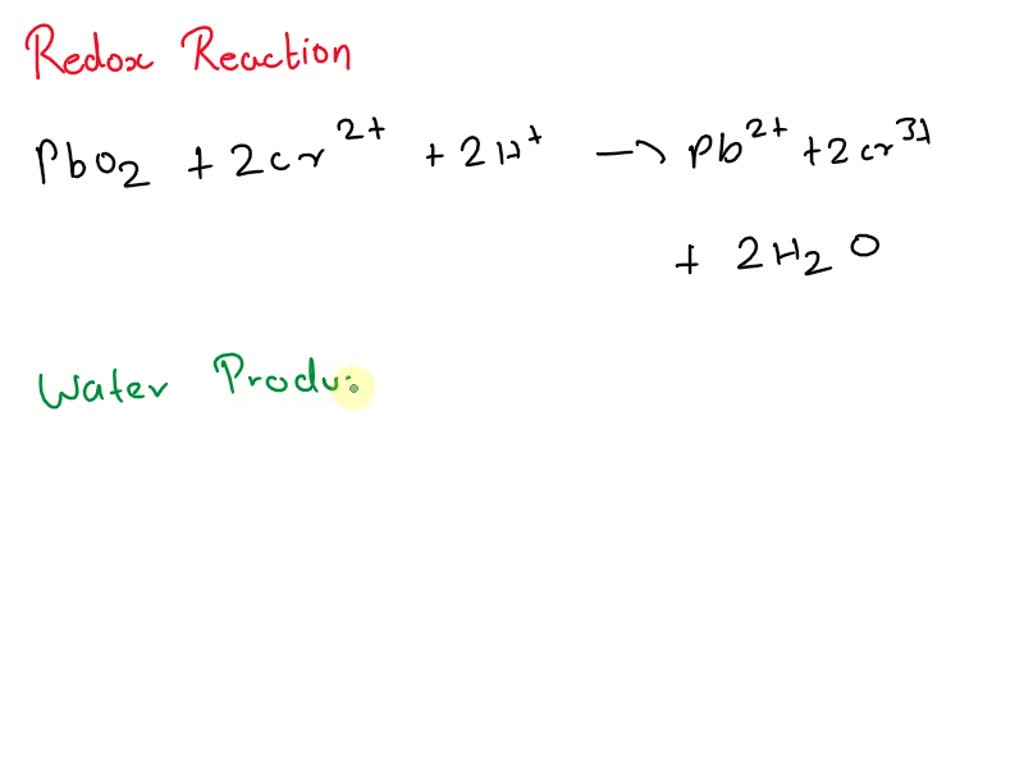 Redox Reaction
PbO₂ + 2cr²⁺ + 2H⁺ → Pb²⁺ + 2cr³⁺
+ 2H₂O
Water Produ